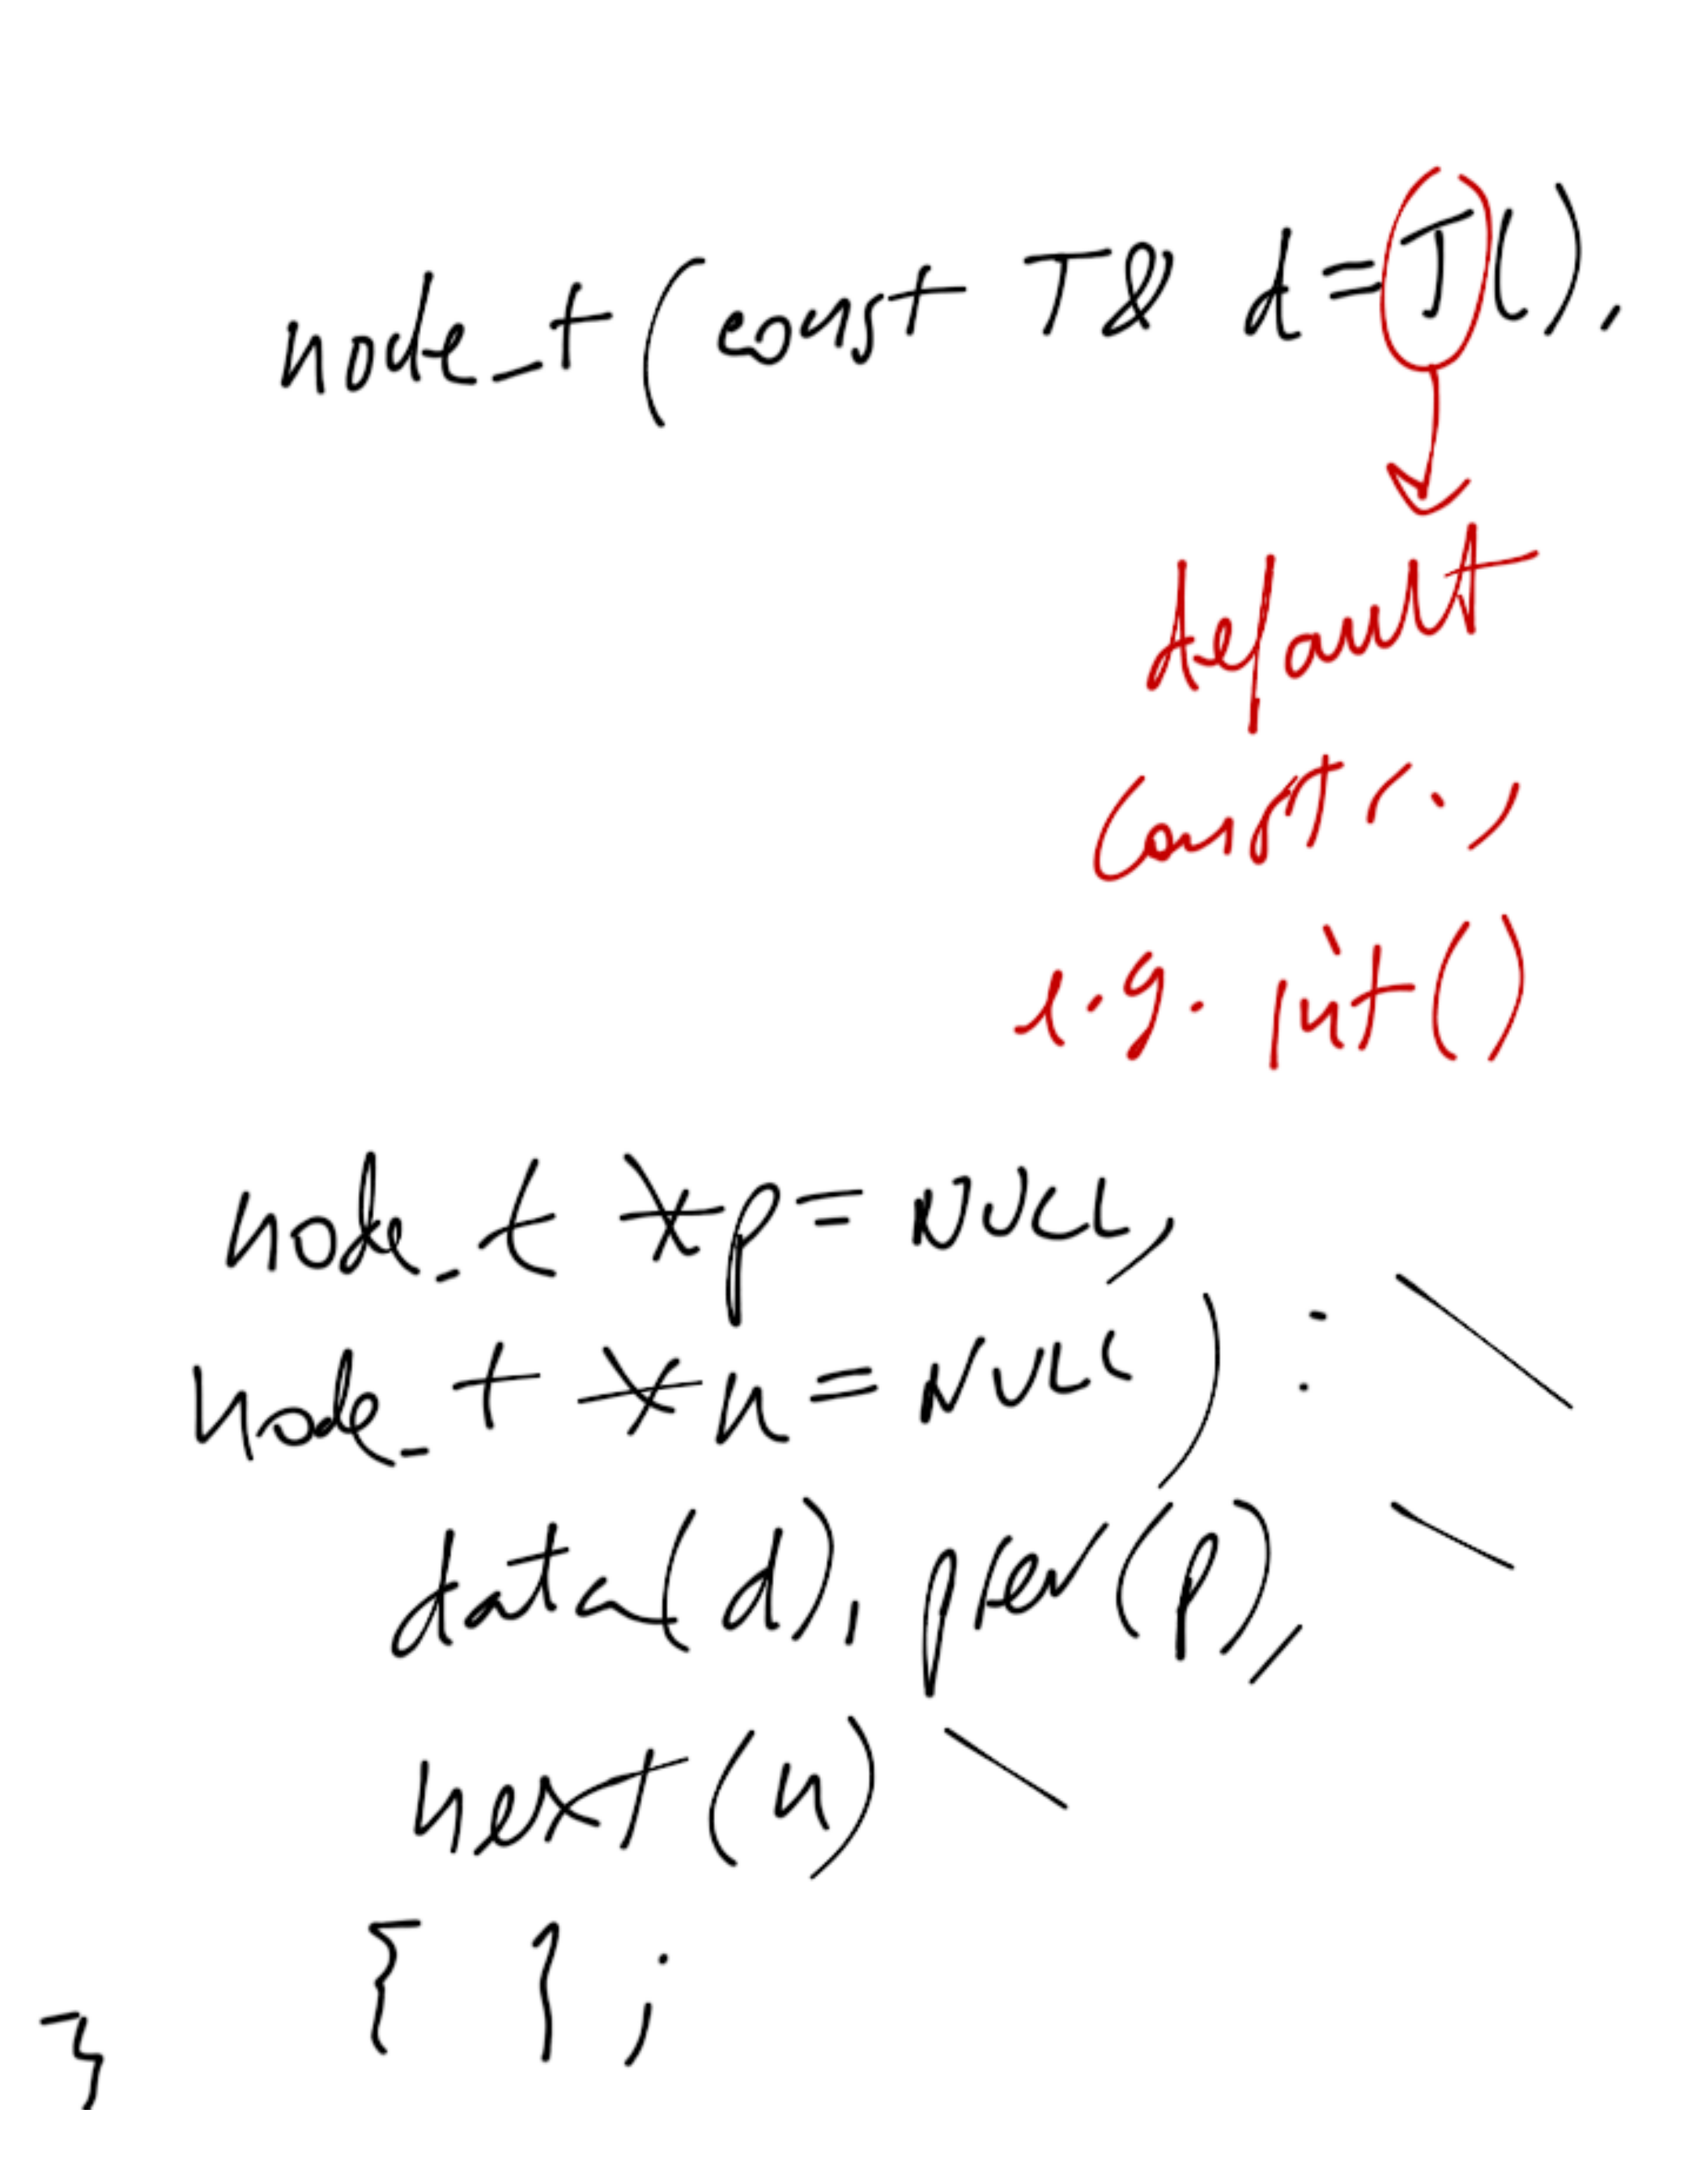 node_t (const T& d=T(),
default
constr.,
e.g. int()
node_t *p = NULL,
node_t *n = NULL) : \
data(d), prev(p), \
next(n) \
{ } ;
}